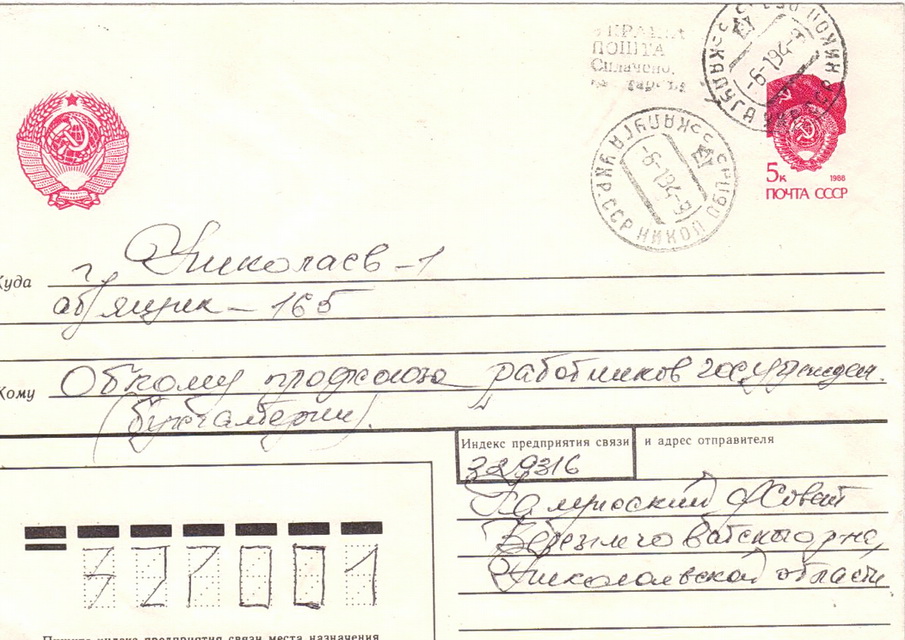 УКРАЇНА
ПОШТА
Сплачено.
-6-1 94-9
УКР. ССР НИКОЛ
КАЛУГА
5к 1988
ПОЧТА СССР
Куда г. Николаев-1
аб/ящик-165
Кому Обкому профсоюза работников госучрежден.
(бухгалтерии).
Индекс предприятия связи и адрес отправителя
329316
С/Совет
Березнеговатского р-на,
Николаевской области
327001
Пишите индекс предприятия связи места назначения